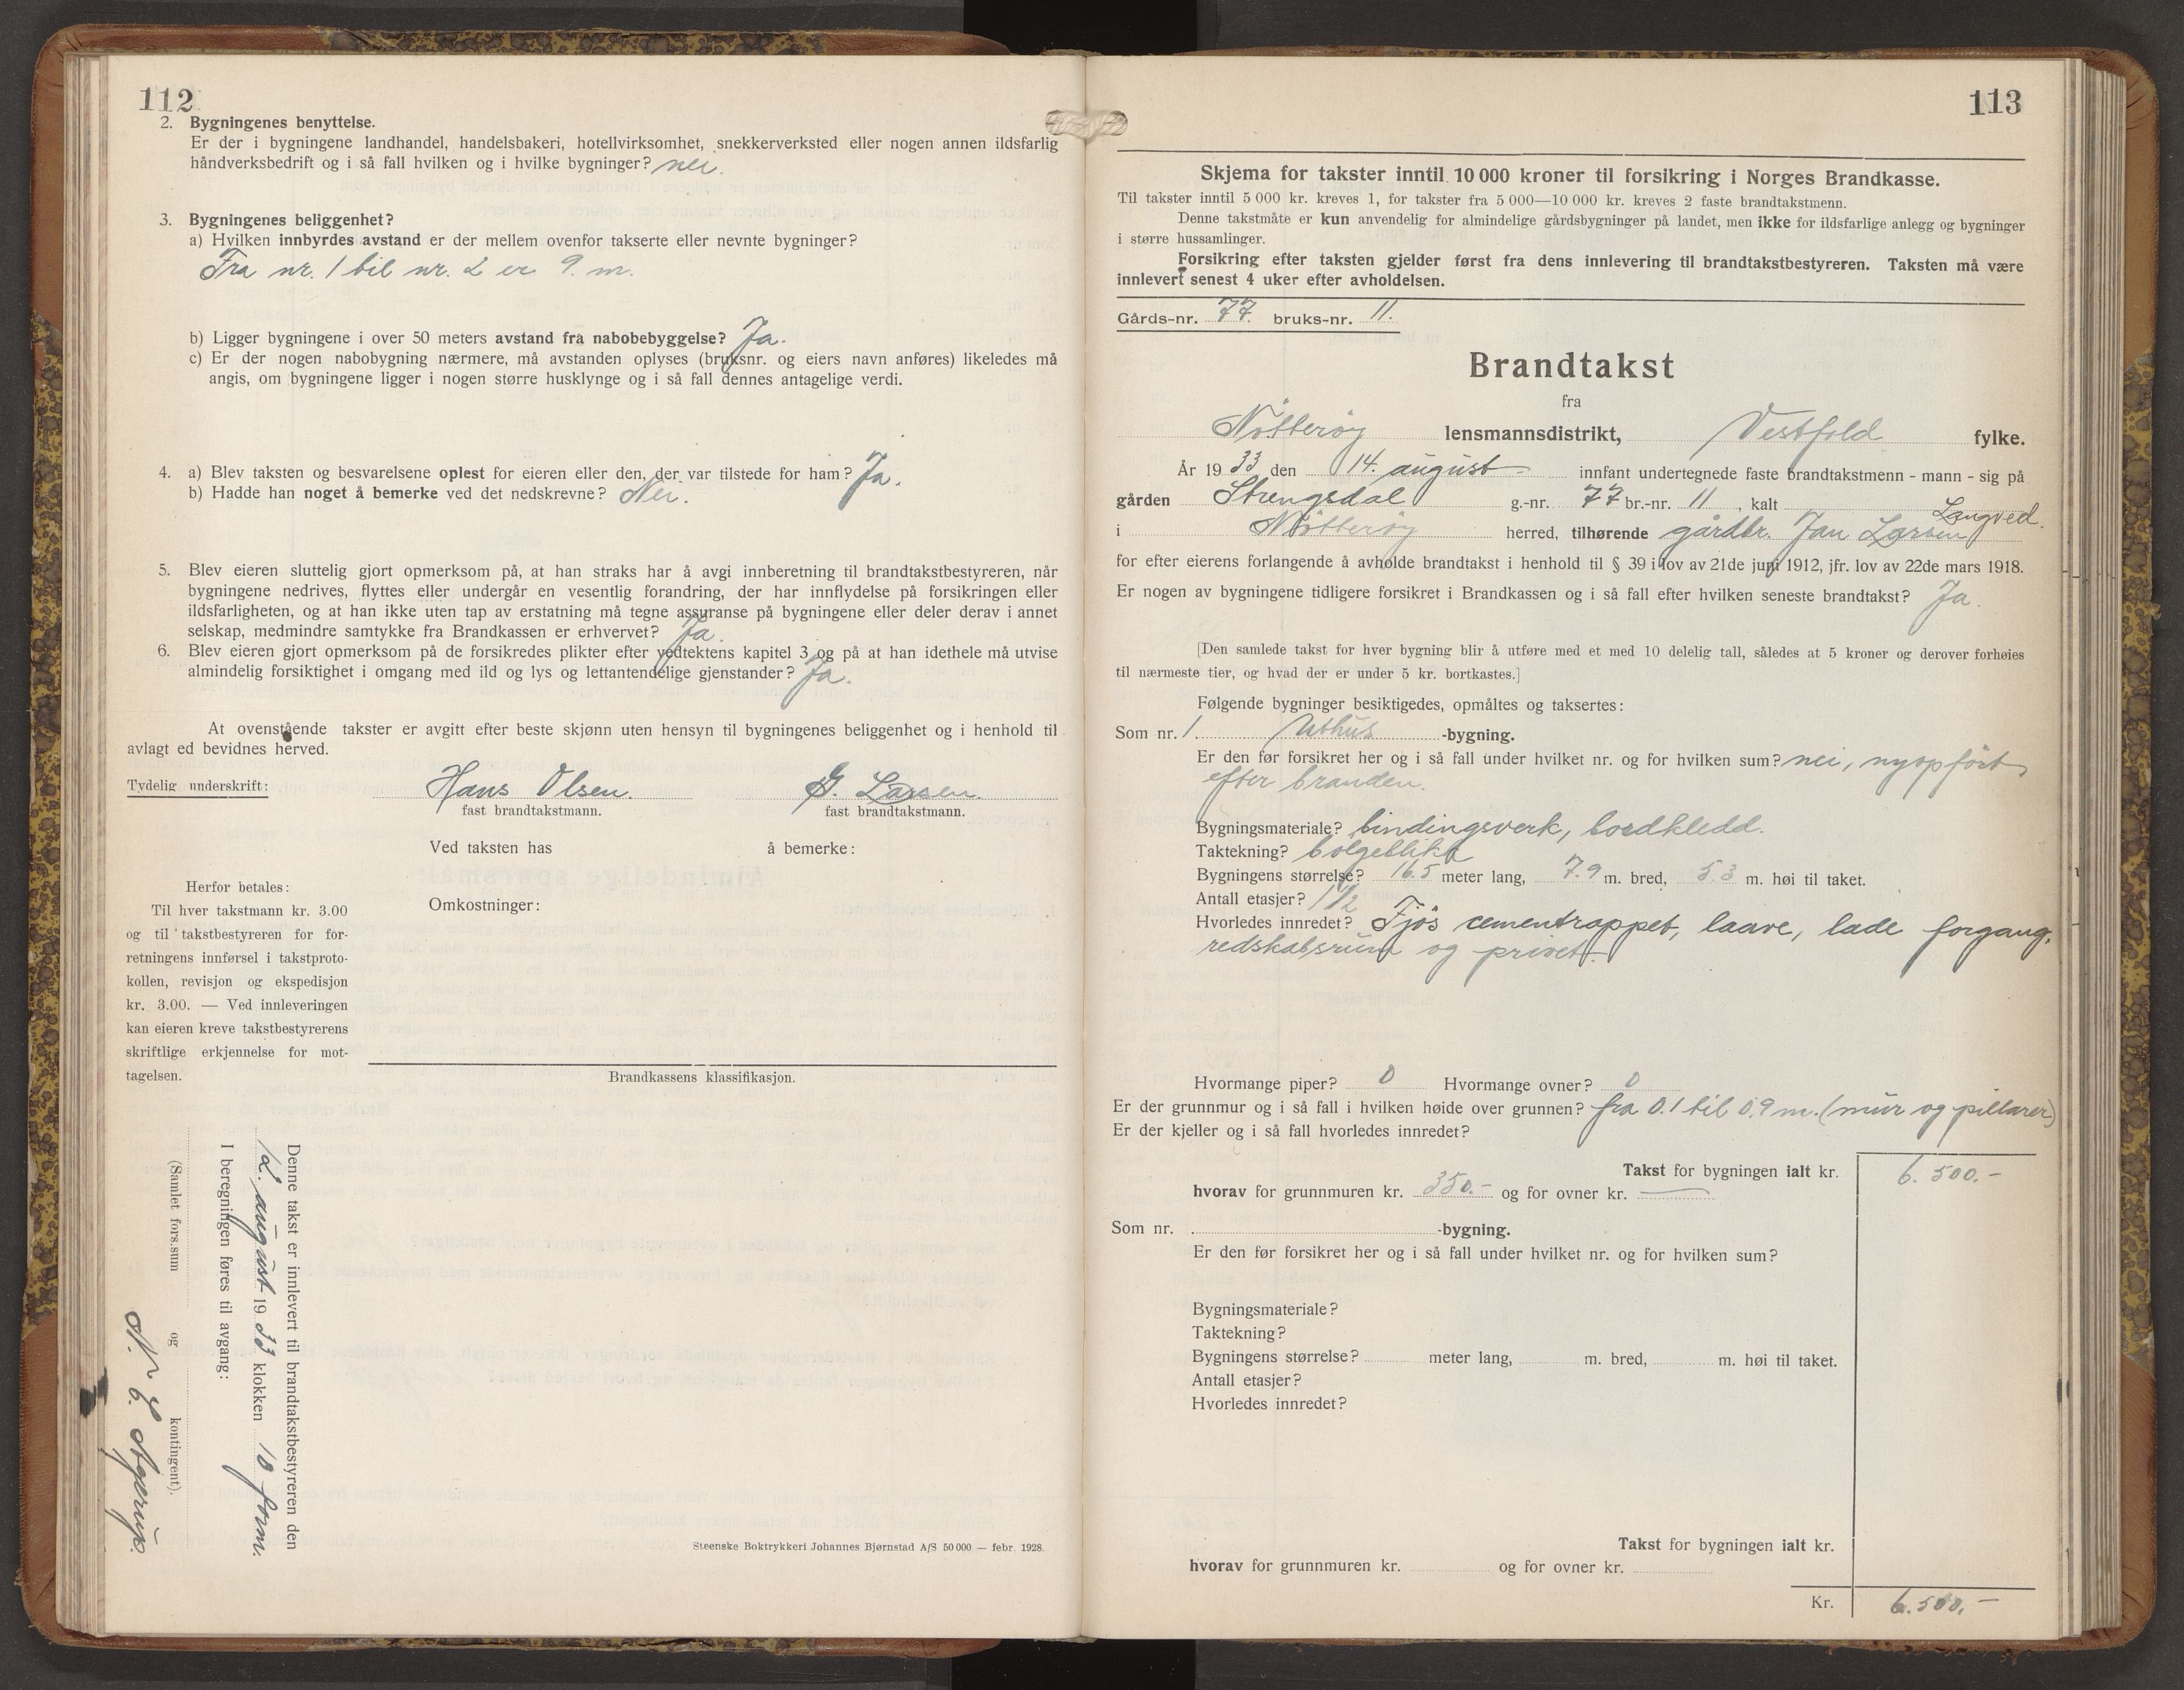 112
2. Bygningenes benyttelse.
Er der i bygningene landhandel, handelsbakeri, hotellvirksomhet, snekkerverksted eller nogen annen ildsfarlig
håndverksbedrift og i så fall hvilken og i hvilke bygninger? nei.
3. Bygningenes beliggenhet?
a) Hvilken innbyrdes avstand er der mellem ovenfor takserte eller nevnte bygninger?
Fra nr. 1 til nr. 2 er 9. m.
b) Ligger bygningene i over 50 meters avstand fra nabobebyggelse? Ja.
c) Er der nogen nabobygning nærmere, må avstanden oplyses (bruksnr. og eiers navn anføres) likeledes må
angis, om bygningene ligger i nogen større husklynge og i så fall dennes antagelige verdi.
4. a) Blev taksten og besvarelsene oplest for eieren eller den, der var tilstede for ham? Ja.
b) Hadde han noget å bemerke ved det nedskrevne? Nei.
5. Blev eieren sluttelig gjort opmerksom på, at han straks har å avgi innberetning til brandtakstbestyreren, når
bygningene nedrives, flyttes eller undergår en vesentlig forandring, der har innflydelse på forsikringen eller
ildsfarligheten, og at han ikke uten tap av erstatning må tegne assuranse på bygningene eller deler derav i annet
selskap, medmindre samtykke fra Brandkassen er erhvervet? Ja.
6. Blev eieren gjort opmerksom på de forsikredes plikter efter vedtektens kapitel 3 og på at han idethele må utvise
almindelig forsiktighet i omgang med ild og lys og lettantendelige gjenstander? Ja.
At ovenstående takster er avgitt efter beste skjønn uten hensyn til bygningenes beliggenhet og i henhold til
avlagt ed bevidnes herved.
Tydelig underskrift: Hans Olsen. G. Larsen.
fast brandtakstmann. fast brandtakstmann.
Ved taksten has å bemerke:
Omkostninger:
Herfor betales:
Til hver takstmann kr. 3.00
og til takstbestyreren for for-
retningens innførsel i takstproto-
kollen, revisjon og ekspedisjon
kr. 3.00. — Ved innleveringen
kan eieren kreve takstbestyrerens
skriftlige erkjennelse for mot-
tagelsen.
Brandkassens klassifikasjon.
Denne takst er innlevert til brandtakstbestyreren den
12. august 1933 klokken 10 form.
I beregningen føres til avgang:
(Samlet fors.sum og kontingent).
Steenske Boktrykkeri Johannes Bjørnstad A/S 50 000 — febr. 1928.
113
Skjema for takster inntil 10 000 kroner til forsikring i Norges Brandkasse.
Til takster inntil 5 000 kr. kreves 1, for takster fra 5 000—10 000 kr. kreves 2 faste brandtakstmenn.
Denne takstmåte er kun anvendelig for almindelige gårdsbygninger på landet, men ikke for ildsfarlige anlegg og bygninger
i større hussamlinger.
Forsikring efter taksten gjelder først fra dens innlevering til brandtakstbestyreren. Taksten må være
innlevert senest 4 uker efter avholdelsen.
Gårds-nr. 77. bruks-nr. 11.
Brandtakst
fra
Nötterøy lensmannsdistrikt, Vestfold fylke.
År 1933 den 14. august innfant undertegnede faste brandtakstmenn - mann - sig på
gården Strengsdal g.-nr. 77 br.-nr. 11, kalt Langved.
i Nötterøy herred, tilhørende gårdbr. Jan Larsen
for efter eierens forlangende å avholde brandtakst i henhold til § 39 i lov av 21de juni 1912, jfr. lov av 22de mars 1918.
Er nogen av bygningene tidligere forsikret i Brandkassen og i så fall efter hvilken seneste brandtakst? Ja.
[Den samlede takst for hver bygning blir å utføre med et med 10 delelig tall, således at 5 kroner og derover forhøies
til nærmeste tier, og hvad der er under 5 kr. bortkastes.]
Følgende bygninger besiktigedes, opmåltes og taksertes:
Som nr. 1. Uthus -bygning.
Er den før forsikret her og i så fall under hvilket nr. og for hvilken sum? nei, nyopført
efter branden.
Bygningsmateriale? bindingsverk, bordkledd.
Taktekning? bølgeblikk
Bygningens størrelse? 16.5 meter lang, 7.9 m. bred, 5.3 m. høi til taket.
Antall etasjer? 1 1/2
Hvorledes innredet? Fjös cementrappet, laave, lade forgang,
redskabsrum og privet.
Hvormange piper? 0 Hvormange ovner? 0
Er der grunnmur og i så fall i hvilken høide over grunnen? fra 0.1 til 0.9 m. (mur og pillarer)
Er der kjeller og i så fall hvorledes innredet?
Takst for bygningen ialt kr. 6.500.-
hvorav for grunnmuren kr. 350.- og for ovner kr. —
Som nr. -bygning.
Er den før forsikret her og i så fall under hvilket nr. og for hvilken sum?
Bygningsmateriale?
Taktekning?
Bygningens størrelse? meter lang, m. bred, m. høi til taket.
Antall etasjer?
Hvorledes innredet?
Takst for bygningen ialt kr.
hvorav for grunnmuren kr. og for ovner kr.
Kr. 6.500.-